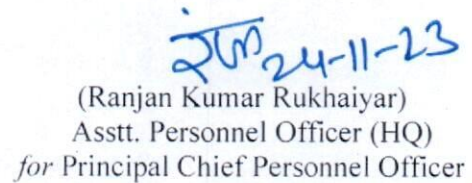 24-11-23
(Ranjan Kumar Rukhaiyar)
Asstt. Personnel Officer (HQ)
for Principal Chief Personnel Officer